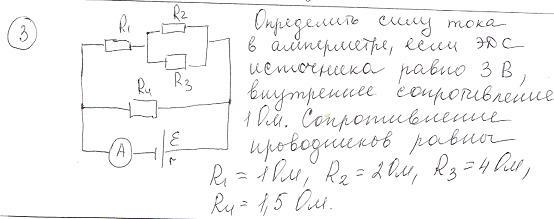 3
R₁
R₂
R₃
R₄
A
ℰ
r
Определить силу тока
в амперметре, если ЭДС
источника равно 3 В,
внутреннее сопротивление
1 Ом. Сопротивление
проводников равны
R₁ = 1 Ом, R₂ = 2 Ом, R₃ = 4 Ом,
R₄ = 1,5 Ом.